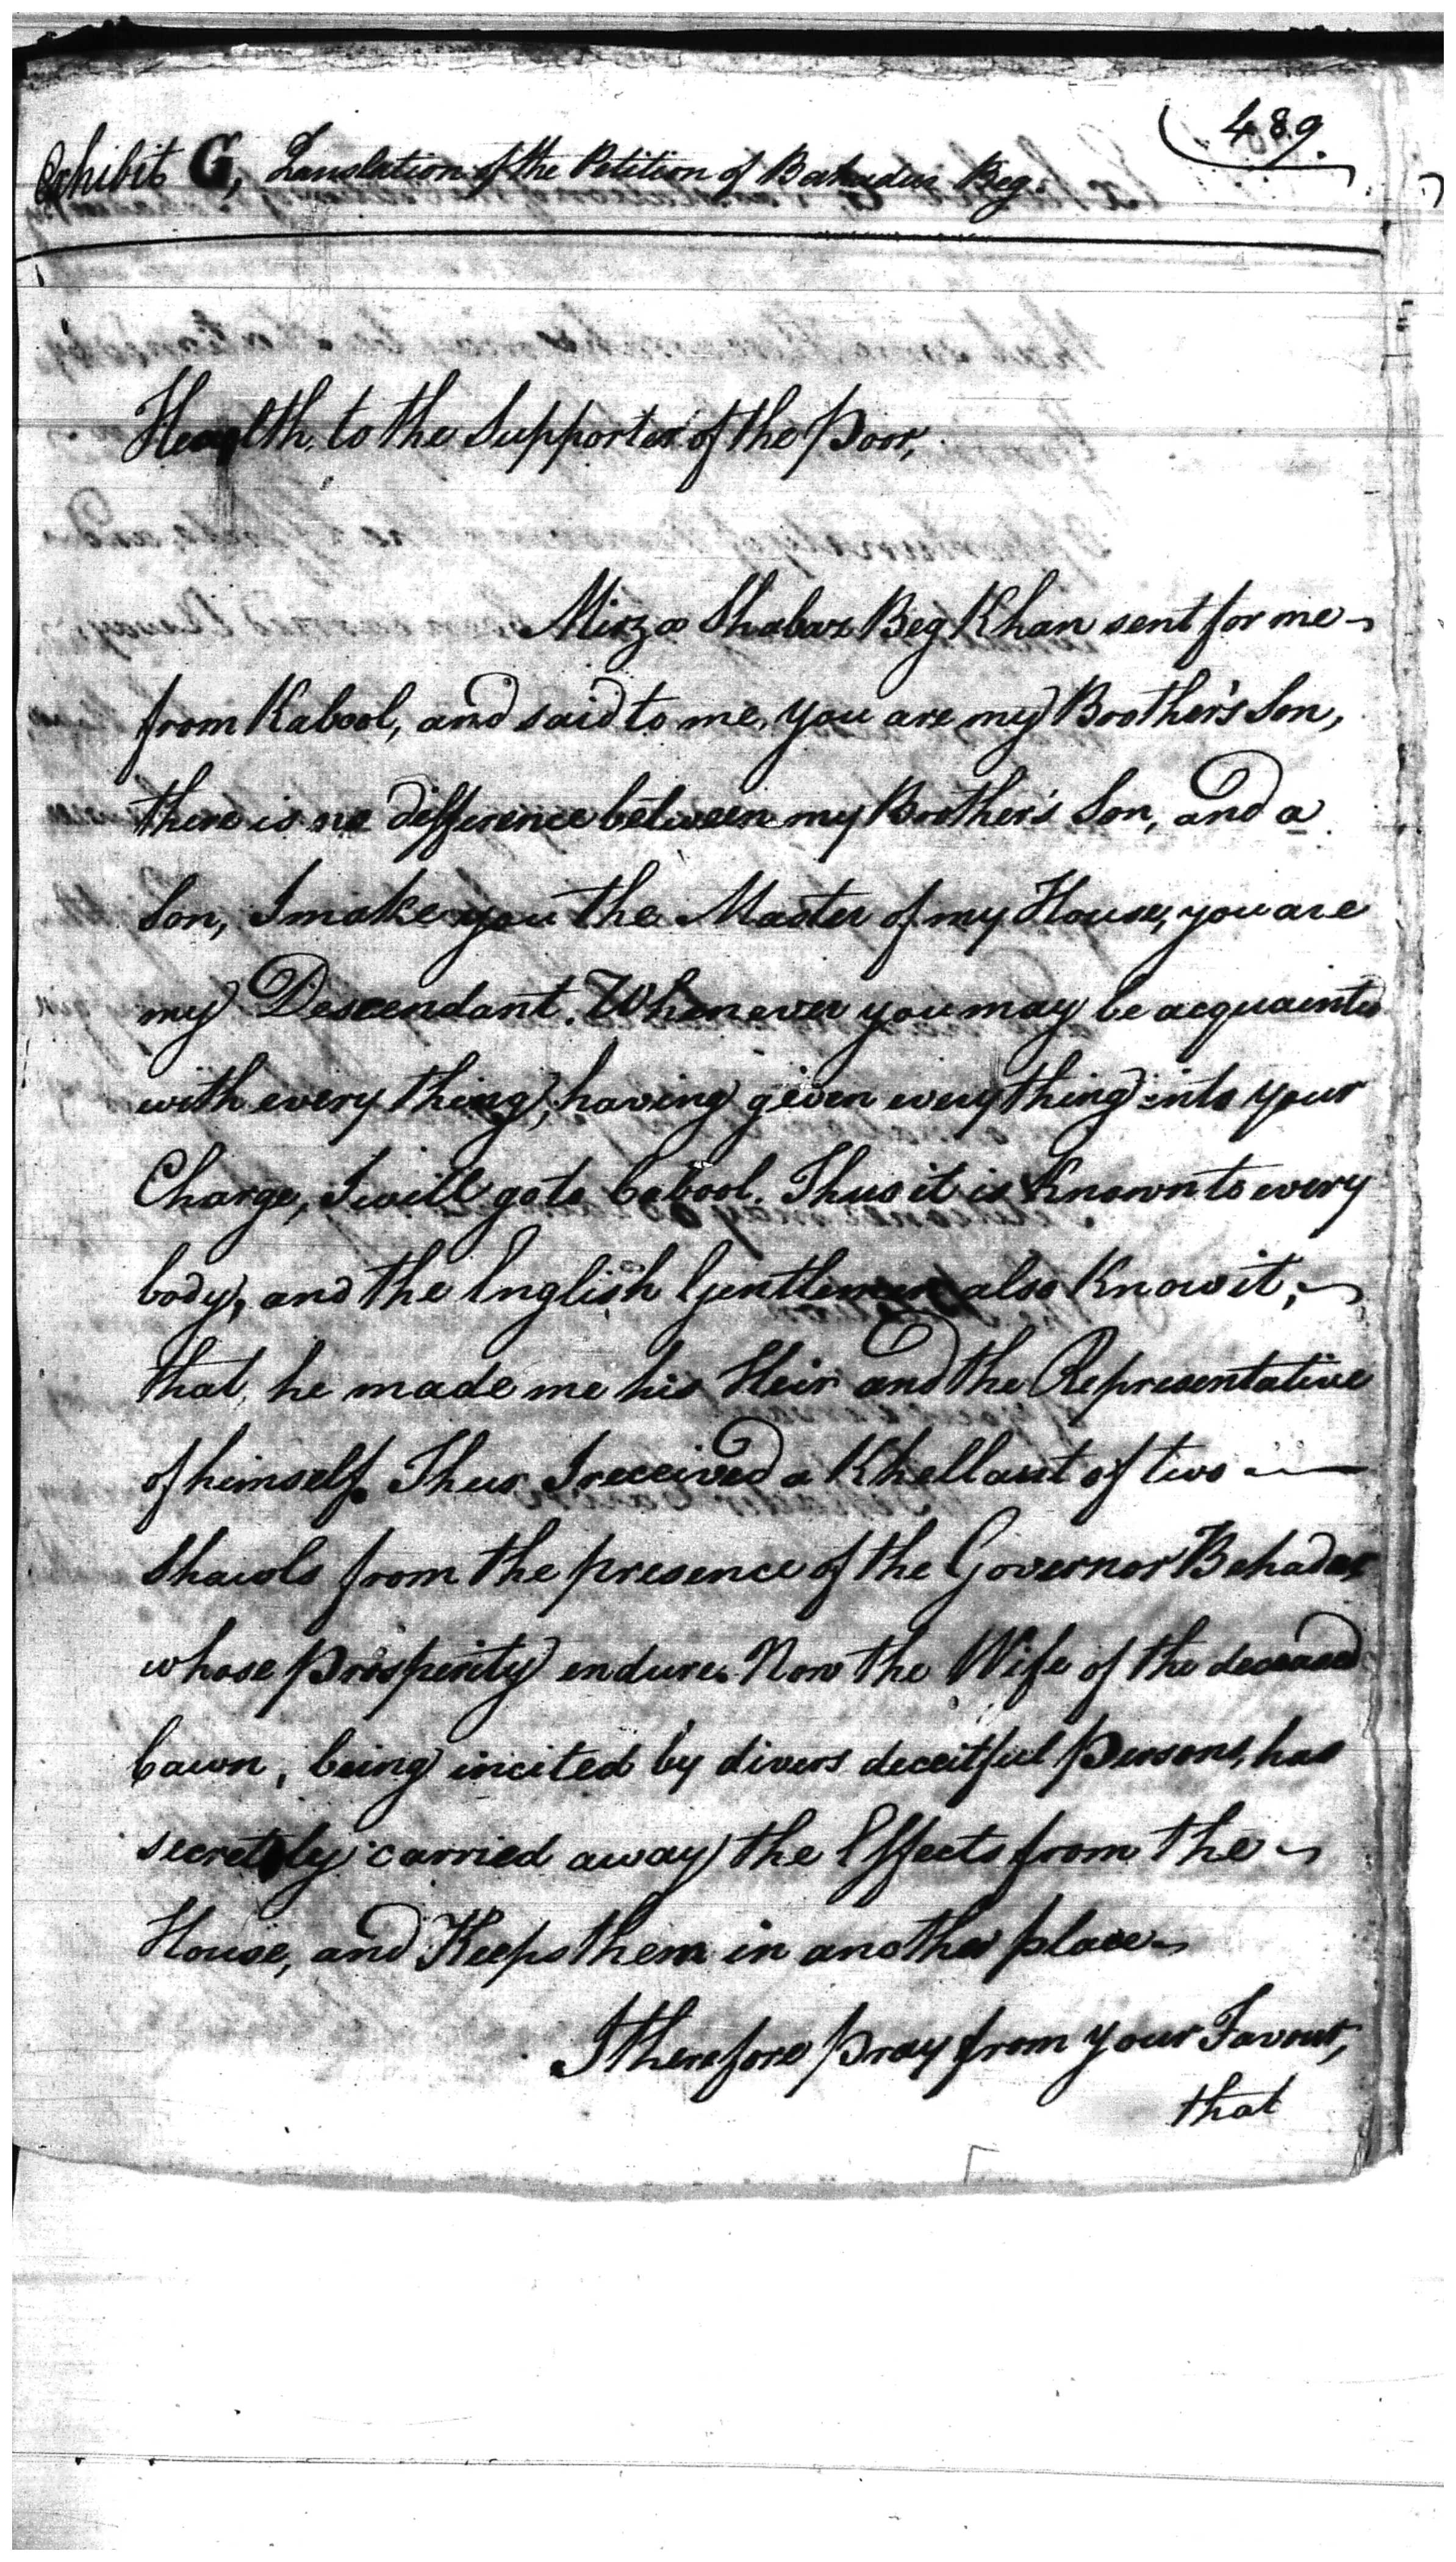 489.
Exhibit G, Translation of the Petition of Bahadur Beg.
Health to the Supporter of the Poor,
Mirza Shabaz Beg Khan sent for me
from Kabool, and said to me, you are my Brother's Son,
there is no difference between my Brother's Son, and a
Son, I make you the Master of my House, you are
my Descendant. Whenever you may be acquainted
with every thing, having given every thing into your
Charge, I will go to Cabool. Thus it is Known to every
body, and the English Gentlemen also Know it,
that he made me his Heir and the Representative
of himself. Thus I received a Khellaut of two
Shawls from the presence of the Governor Behader
whose prosperity endure. Now the Wife of the deceased
Cawn, being incited by divers deceitful Persons, has
secretly carried away the Effects from the
House, and Keeps them in another place
I therefore pray from your Favour,
that